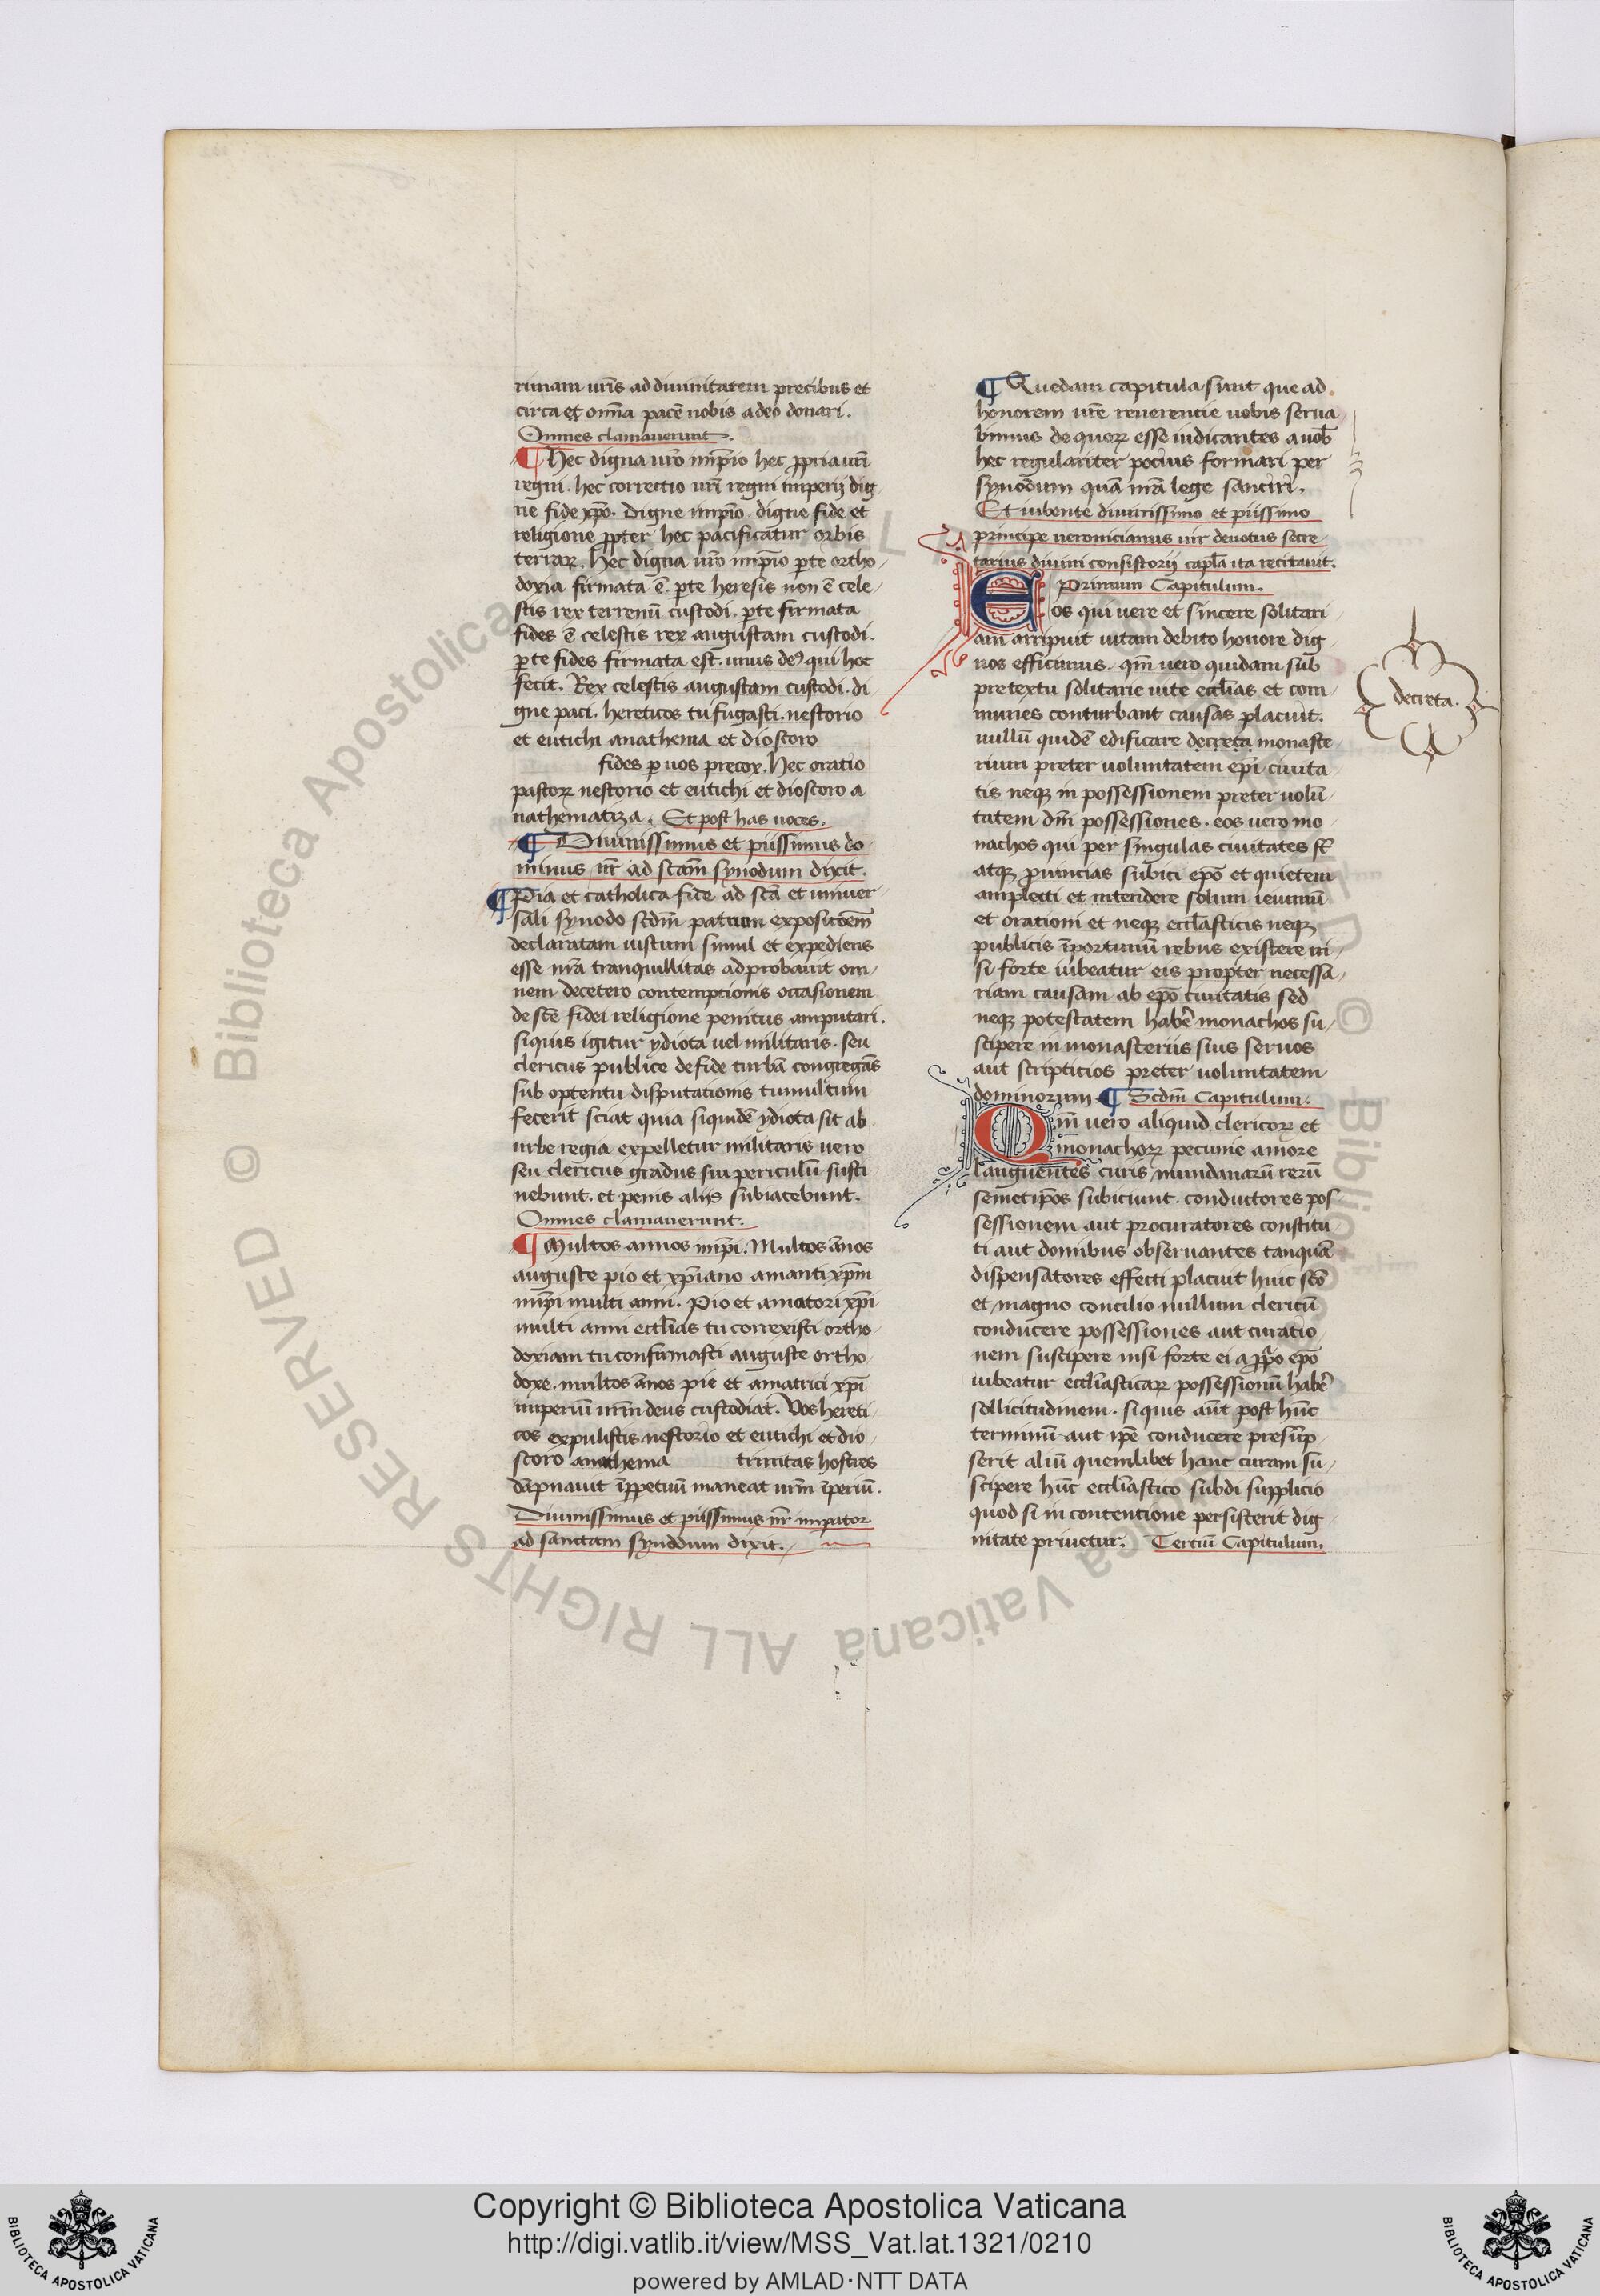 rimam urīs ad diuinitatem precibus et
circa et omīa pacē nobis a deo donari.
Omnes clamauerunt.
¶ Hec digna urō imp̄io hec ꝓpria urī
regni. hec correctio urī regni imperij dig
ne fide xp̄o. Digne imp̄io. digne fide et
religione ꝓpter hec pacificatur orbis
terraꝝ. Hec digna urō imp̄io p̱ te ortho
doxia firmata ē. p̱ te heresis non ē cele
stis rex terrenū custodi. p̱ te firmata
fides ē celestis rex augustam custodi.
p̱ te fides firmata est. unus deꝰ qui hoc
fecit. Rex celestis augustam custodi. di
gne paci. hereticos tu fugasti. nestorio
et eutichi anathema et dioscoro
fides p̱ uos precox. Hec oratio
pastoꝝ nestorio et eutichi et dioscoro a
nathematiza. Et post has uoces.
¶ Diuinissimus et piissimus do
minus nr̄ ad scām synodum dixit.
¶ Pia et catholica fide ad scā et uniuer
sali synodo scdm̄ patrum expositōem
declaratam iustum simul et expediens
esse nrā tranquillitas adprobauit om
nem decetero contemptionis occasionem
de scē fidei religione penitus amputari.
siquis igitur ydiota uel militaris. seu
clericus publice de fide turbā congregās
sub optentu disputationis tumultum
fecerit sciat quia siquidē ydiota sit ab
urbe regia expelletur militaris uero
seu clericus gradus sui periculū susti
nebunt. et penis aliis subiacebunt.
Omnes clamauerunt.
¶ Multos annos imp̄i. Multos ānos
auguste pio et xp̄iano amanti xp̄m
imp̄i multi anni. Pio et amatori xp̄i
multi anni eccl̄ias tu correxisti ortho
doxiam tu confirmasti auguste ortho
doxe. multos ānos pie et amatrici xp̄i
imperiū urm̄ deus custodiat. Vos hereti
cos expulistis nestorio et eutichi et dio
scoro anathema trinitas hostes
dāpnauit īp̱petuū maneat urm̄ īperiū.
Diuinissimus et piissimus nr̄ imp̱ator
ad sanctam synodum dixit.
¶ Quedam capitula sunt que ad
honorem urē reuerencie uobis serua
bimus decuoꝝ esse iudicantes a uob̄
hec regulariter pocius formari per
synodum quā nrā lege sanciri.
Et iubente diuinissimo et piissimo
principe ueronicianus uir deuotus secre
tarius diuini consistorii capl̄a ita recitauit.
Primum Capitulum.
Eos qui uere et sincere solitari
am arripiūt uitam debito honore dig
nos efficimus. qm̄ uero quidam sub
pretextu solitarie uite eccl̄ias et com
munes conturbant causas placuit.
nullū quidē edificare decreta monaste
rium preter uoluntatem epī ciuita
tis neqꝫ in possessionem preter uolū
tatem dn̄i possessiones. eos uero mo
nachos qui per singulas ciuitates st̄
atqꝫ ꝓuincias subici epō et quietem
amplecti et intendere solum ieiuniū
et orationi et neqꝫ eccl̄asticis neqꝫ
publicis īportunū rebus existere ni
si forte iubeatur eis propter necessa
riam causam ab epō ciuitatis sed
neqꝫ potestatem habere monachos su
scipere in monasteriis suis seruos
aut scripticios preter uoluntatem
dominorum. ¶ Scdm̄ Capitulum.
Qm̄ uero aliquid clericoꝝ et
monachoꝝ pecunie amore
languentes curis mundanarū rerū
semetip̄os subiciunt. conductores pos
sessionem aut procuratores constitu
ti aut domibus obseruantes tanquā
dispensatores effecti placuit huic scō
et magno concilio nullum clericū
conducere possessiones aut curatio
nem suscipere nisi forte ei a ꝓp̄o epō
iubeatur eccl̄iasticaꝝ possessionū habere
sollicitudinem. siquis aūt post hūc
terminū aut ip̄e conducere presūp
serit aliū quemlibet hanc curam su
scipere hūc eccl̄iastico subdi supplicio
quod si in contentione persisterit dig
nitate priuetur. Terciū Capitulum.
decreta.
© Biblioteca Apostolica Vaticana ALL RIGHTS RESERVED
Copyright © Biblioteca Apostolica Vaticana
http://digi.vatlib.it/view/MSS_Vat.lat.1321/0210
powered by AMLAD·NTT DATA
BIBLIOTECA APOSTOLICA VATICANA
BIBLIOTECA APOSTOLICA VATICANA